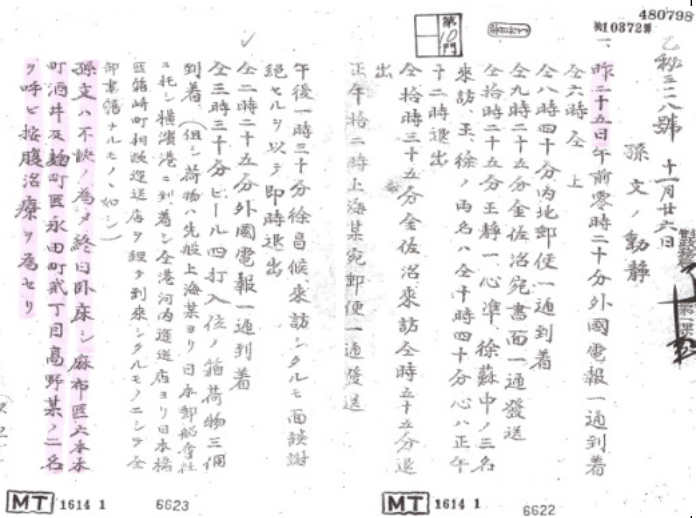 480798
秘10372號
乙秘三二八號 十一月廿六日
孫文ノ動靜
一、昨二十五日午前零時二十分外國電報一通到着
仝六時仝上
仝八時四十分内地郵便一通到着
仝九時二十五分金佐治宛書面一通發送
仝拾時二十五分王靜一、心準、徐蘇中ノ三名
來訪、王、徐ノ両名ハ仝十時四十分心ハ正午
十二時退出
仝拾時三十五分金佐治來訪仝時五十五分退
出
正午拾二時上海某宛郵便一通發送
第10門
MT 1614 1
6622
午後一時三十分徐昌候來訪シタルモ面談謝
絕セルヲ以テ即時退出
仝二時二十五分外國電報一通到着
仝三時三十分ビール四打入位ノ箱荷物三個
到着、(但シ荷物ハ先般上海某ヨリ日本郵船會社
ニ托シ横濱港ニ到着シ仝港河内運送店ヨリ日本橋
區箱崎町相政運送店ヲ經テ到來シタルモノニシテ仝
御書籍ナルモノヽ如シ)
孫文ハ不快ノ為メ終日卧床シ麻布區六本木
町酒井及麹町區永田町貳丁目高野某ノ二名
ヲ呼ビ按腹治療ヲ為セリ
MT 1614 1
6623